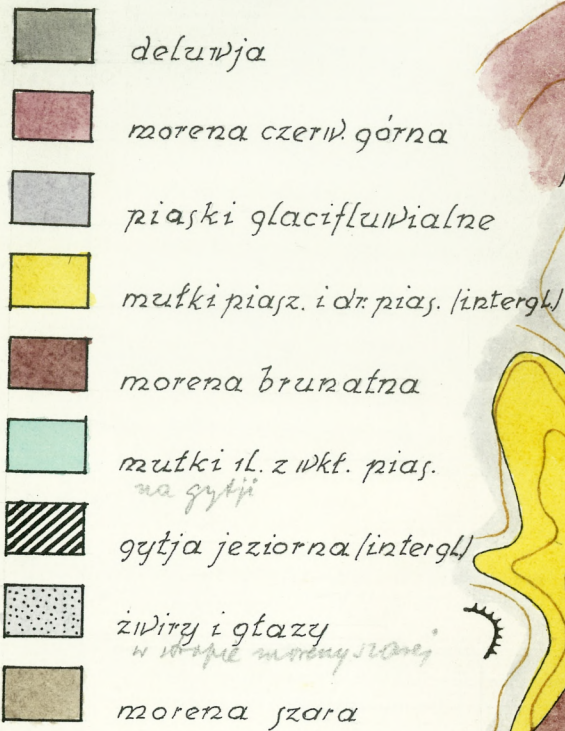 deluwja
morena czerw. górna
piaski glacifluwialne
mułki piasz. i dr. pias. (intergl.)
morena brunatna
mułki ił. z wkł. pias.
na gytji
gytja jeziorna (intergl.)
żwiry i głazy
w stropie moreny szarej
morena szara